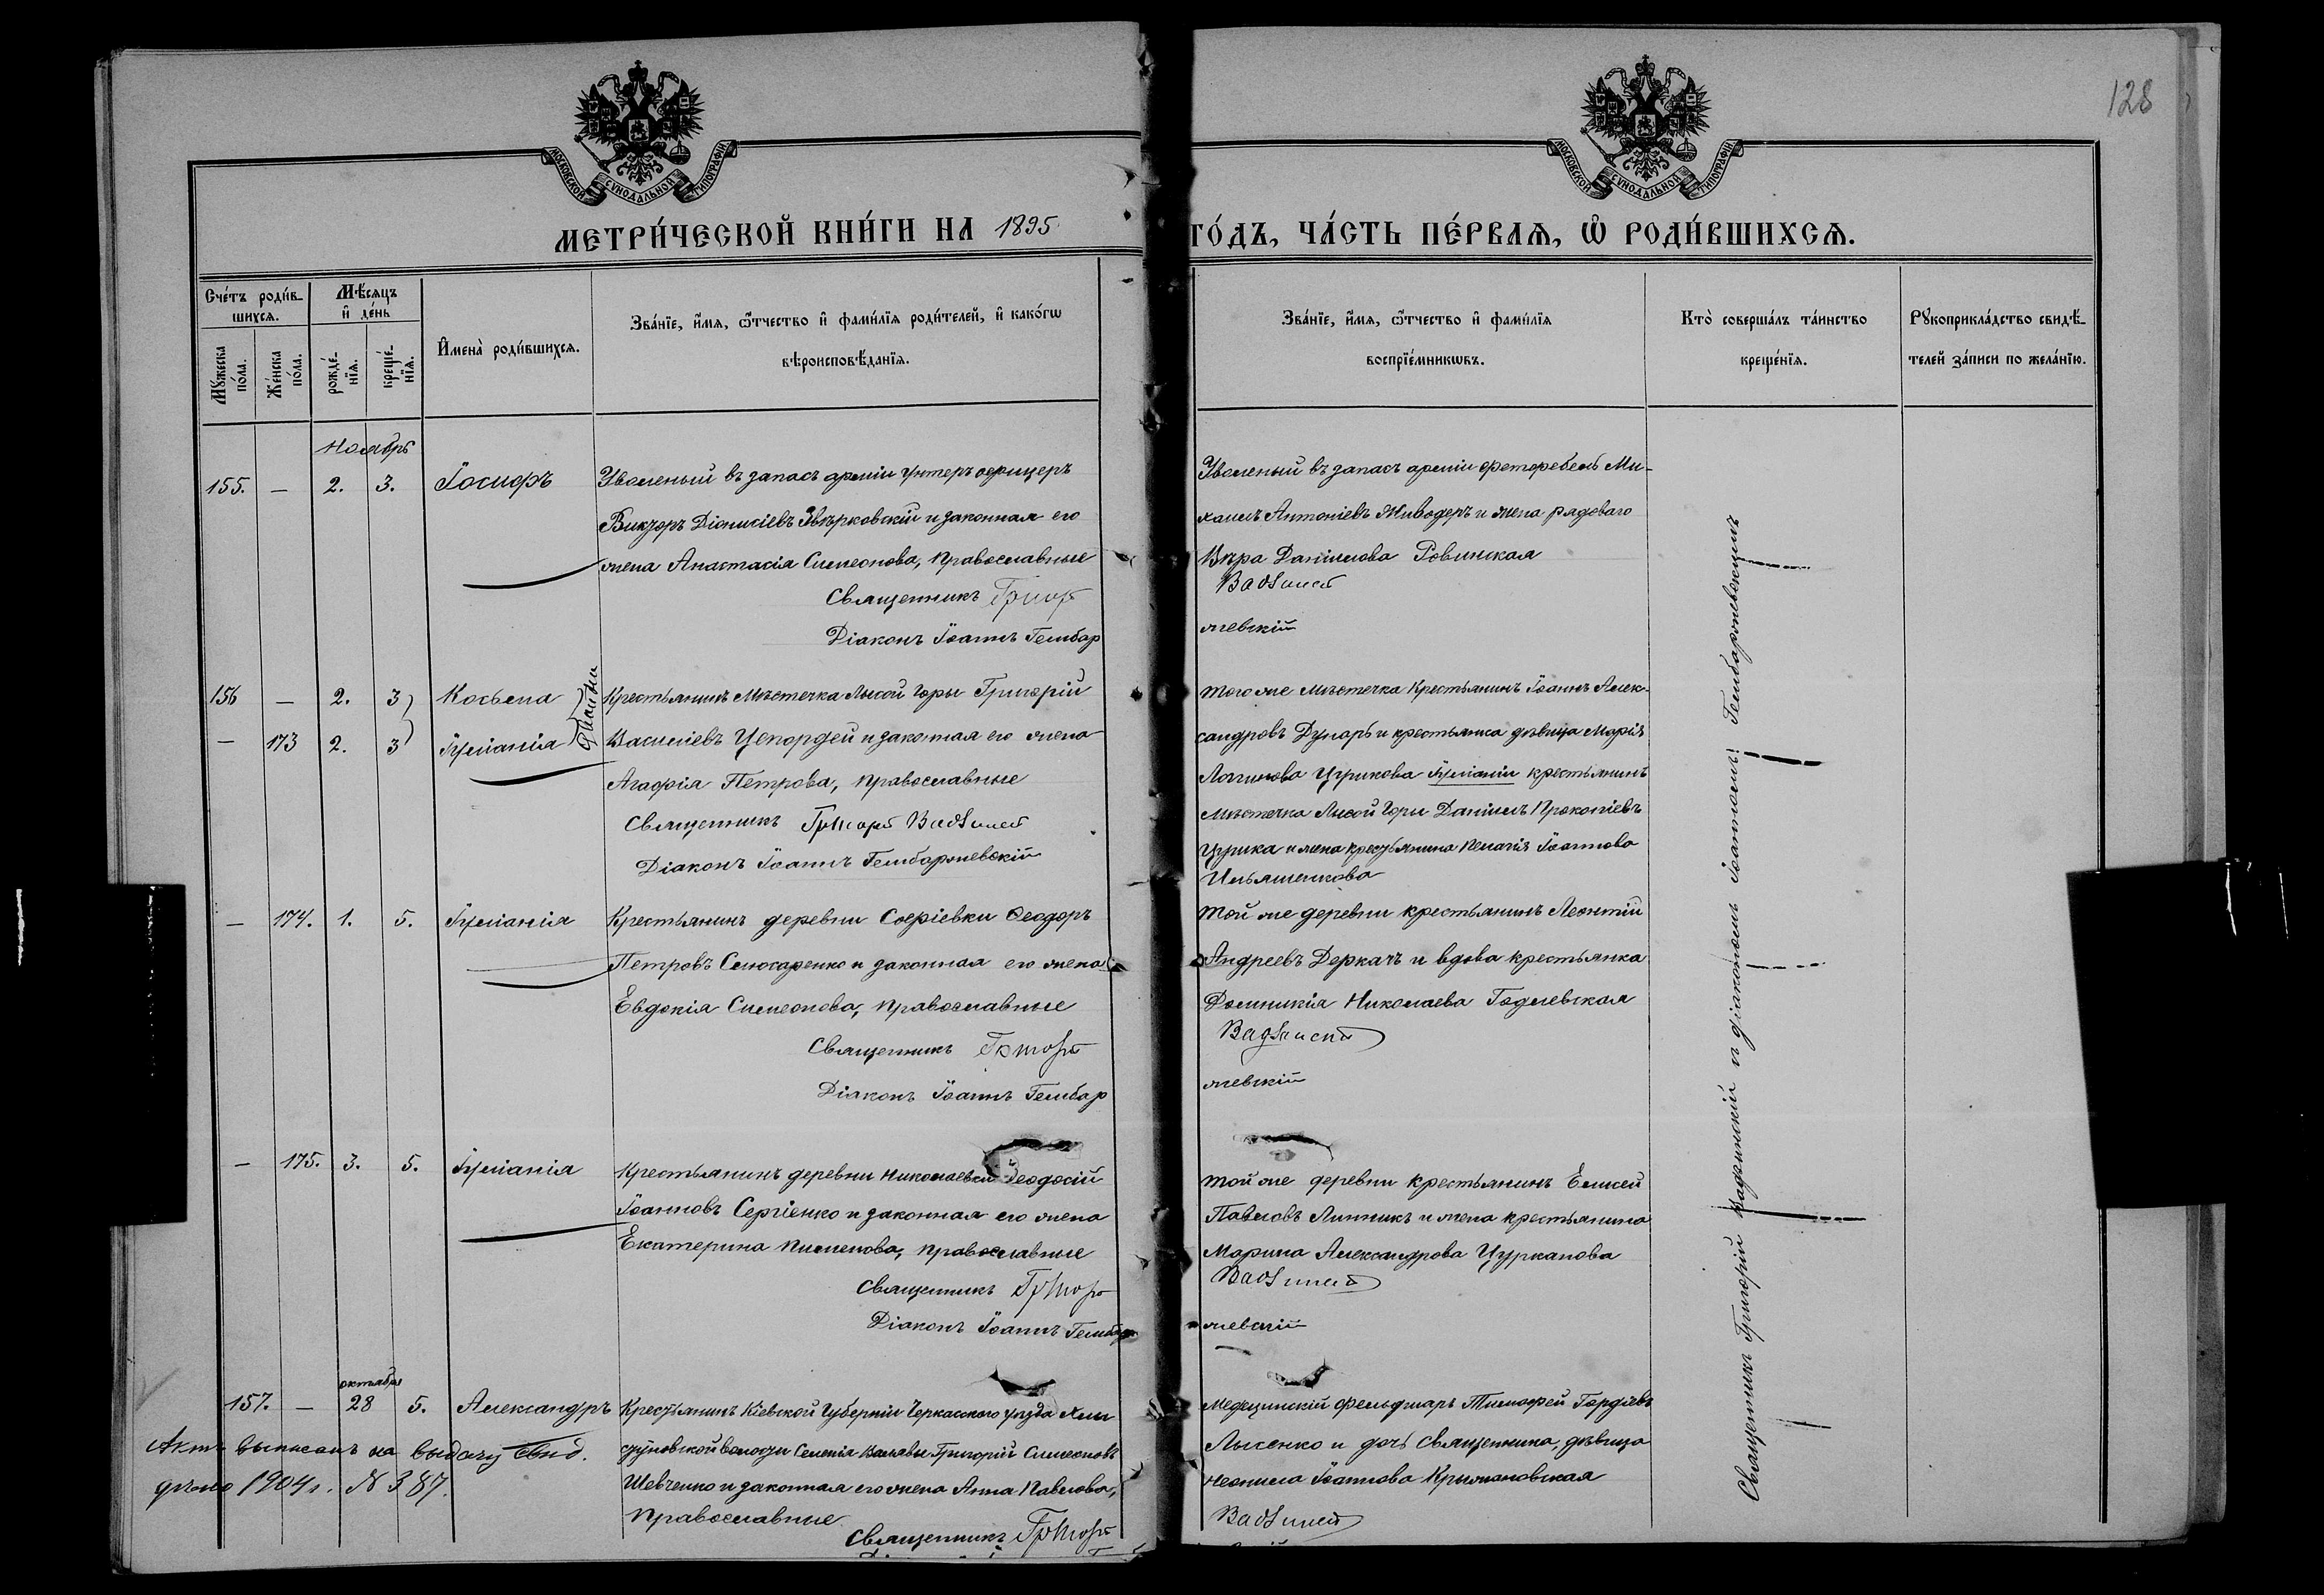 128
МОСКОВСКОЙ СѴНОДАЛЬНОЙ ТИПОГРАФІИ
МОСКОВСКОЙ СѴНОДАЛЬНОЙ ТИПОГРАФІИ
МЕТРИ́ЧЕСКОЙ КНИ́ГИ НА 1895 ГО́ДЪ, ЧА́СТЬ ПЕ́РВАѦ, Ѽ РОДИ́ВШИХСѦ.
Сче́тъ роди́в-
шихсѧ.
Мꙋ́жеска по́ла.
Же́нска по́ла.
Мѣ́сѧцъ и҆ де́нь
рожде́-
нїѧ.
креще́-
нїѧ.
И҆мена̀ роди́вшихсѧ.
Зва́нїе, и҆́мѧ, ѻ҆́тчество и҆ фами́лїѧ роди́телей, и҆ како́гѡ
вѣроисповѣ́данїѧ.
Зва́нїе, и҆́мѧ, ѻ҆́тчество и҆ фами́лїѧ
воспрїе́мникѡвъ.
Кто̀ соверша́лъ та́инство
креще́нїѧ.
Рꙋкоприкла́дство свидѣ́-
телей за́писи по жела́нїю.
Ноябрь
155. — 2. 3. Іосифъ
Уволеный въ запасъ арміи унтеръ офицеръ
Викторъ Діонисіевъ Звѣрковскій и законная его
жена Анастасія Симеонова, православные
Священникъ Григор
Діаконъ Іоаннъ Гембар
Уволеный въ запасъ арміи Ми-
хаилъ Антоніевъ Живодеръ и жена рядоваго
Вѣра Даніилова Ровинская
жевскій
156 — 2. 3 Косьма
— 173 2. 3 Іуліанія
Двойни
Крестьянинъ Мѣстечка Лысой Горы Григорій
Василіевъ и законная его жена
Агафія Петрова, православные
Священникъ Григорій
Діаконъ Іоаннъ Гембаржевскій
того же мѣстечка крестьянинъ Іоаннъ Алек-
сандровъ Дунарь и крестьянка дѣвица Марія
Логгинова Цурикова Іуліаніи крестьянинъ
Мѣстечка Лысой Горы Даніилъ Прокопіевъ
Цурика и жена крестьянина Пелагія Іоаннова
Ильяшенкова
— 174. 1. 5. Іуліанія
Крестьянинъ деревни Софіевки Ѳеодоръ
Петровъ Слюсаренко и законная его жена
Евдокія Симеонова, православные
Священникъ Григорій
Діаконъ Іоаннъ Гембар
той же деревни крестьянинъ Леонтій
Андреевъ Деркачъ и вдова крестьянка
Домникія Николаева Годлевская
жевскій
— 175. 3. 5. Іуліанія
Крестьянинъ деревни Николаевки Ѳеодосій
Іоанновъ Сергіенко и законная его жена
Екатерина Пименова, православные
Священникъ Григор
Діаконъ Іоаннъ Гембар
той же деревни крестьянинъ Елисей
Павловъ Линникъ и жена крестьянина
Марина Александрова Цурканова
жевскій
октября
157. — 28 5. Александръ
Крестьянинъ Кіевской Губерніи Черкасскаго уѣзда
волости Селенія Григорій Симеоновъ
Шевченко и законная его жена Анна Павлова,
православные
Священникъ Григорій
Медецинскій Фельдшаръ Тимофей Гордіевъ
Лысенко и дочь Священника, дѣвица
Неонила Іоаннова Крыжановская
Актъ выписанъ на выдачу свид.
1904 г. № 387.
Священникъ Григорій и діакономъ Іоанномъ Гембаржевскимъ